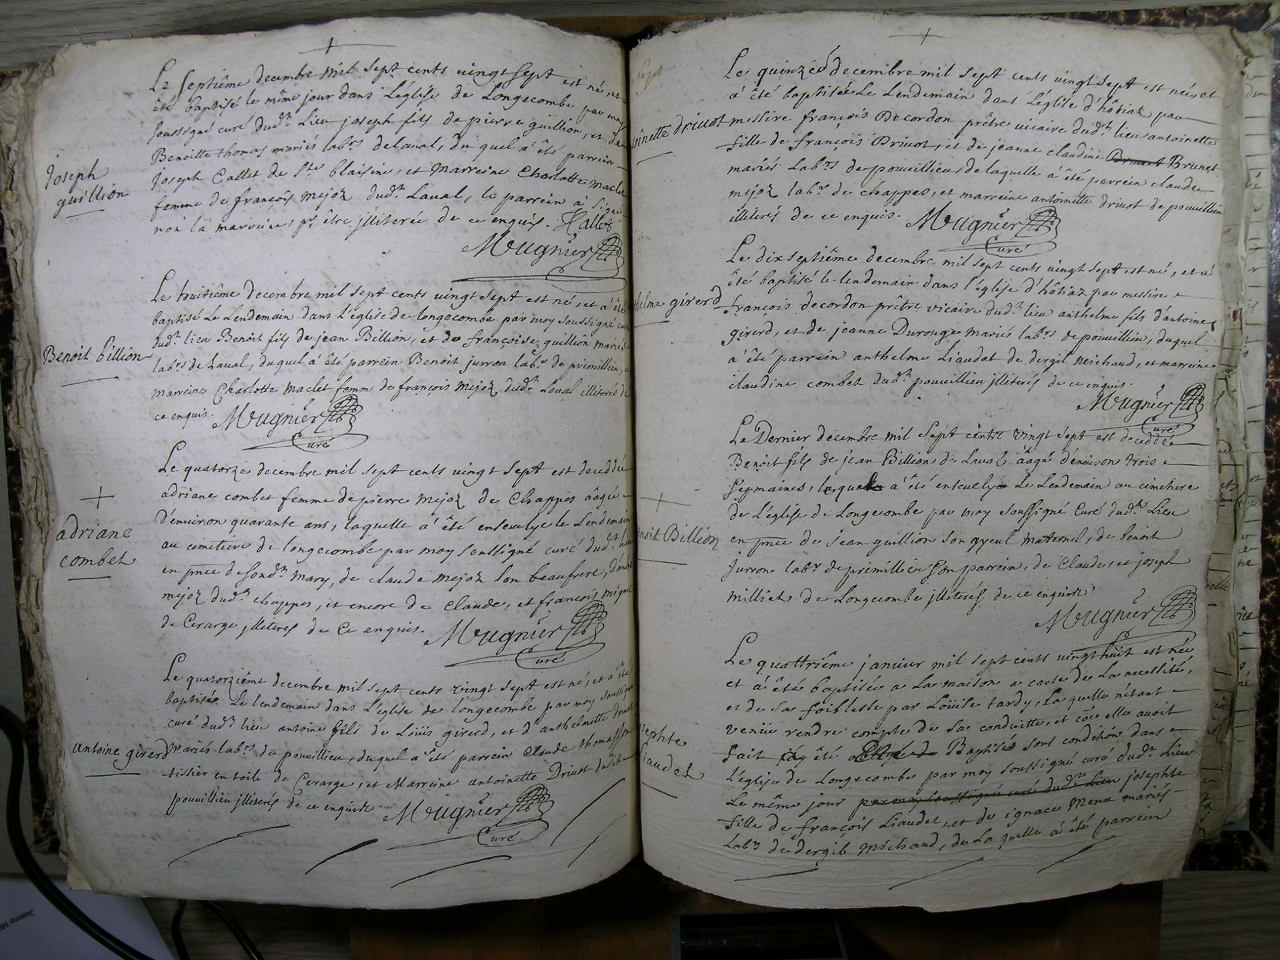 Le Septième decembre mil sept cents vingt sept est né, et a
été baptisé le même jour dans L'eglise de Longecombe par moy
soussigné curé dudt. Lieu joseph fils de pierre guillion, et de
Benoitte thomas mariés labrs. de Laval, du quel a été parrein
joseph Callet de St. blaisine, et Marreine Charlotte maclet
femme de françois mejoz dudt. Laval, le parrein a signé
non la marreine, pr. être jlliterée de ce enquis. Callet
Mugnier
Curé
joseph
guillion
Le huitième decembre mil sept cents vingt sept est né, et a été
baptisé Le Lendemain dans L'eglise de longecombe par moy soussigné curé
dudt. lieu Benoit fils de jean Billion, et de françoise guillion mariés
labrs. de Laval, duquel a été parrein Benoit jurron labr. de primillieu,
marreine Charlotte maclet femme de françois mejoz dudt. Laval jlliterés de
ce enquis. Mugnier
Curé
Benoit billion
Le quatorze decembre mil sept cents vingt sept est decedée
adriane combet femme de pierre mejoz de Chappes âagée
d'environ quarante ans, laquelle a été ensevelye le Lendemain
au cimetiere de longecombe par moy soussigné curé dudt. lieu
en pnce de sondt. mary, de claude mejoz son beaufrere,
mejoz dudt. chappes, et encore de Claude, et françois
de Cerarge jlliterés de Ce enquis. Mugnier
Curé
adriane
combet
Le quatorzième decembre mil sept cents vingt sept est né, et a été
baptisé Le lendemain dans L'eglise de longecombe par moy soussigné
curé dudt. lieu antoine fils de Louis girerd, et d'anthelmette
mariés labrs. de pouvillieu, duquel a été parrein Claude thomasson
tissier en toile de Cerarge, et Marreine antoinette Drivot dudt.
pouvillieu jlliterés de ce enquis. Mugnier
Curé
antoine girerd
Le quinze decembre mil sept cents vingt sept est née, et
a été baptisée Le Lendemain dans L'eglise d'hôtiaz par
messire françois Decordon prêtre vicaire dudt. lieu antoinette
fille de françois Drivot, et de jeanne claudine Brunet
mariés Labrs. de pouvillieu, de laquelle a été parrein claude
mejoz labr. de chappes, et marreine antoinette drivot de pouvillieu
jlliterés de ce enquis. Mugnier
Curé
inette drivot
Le dix septième decembre mil sept cents vingt sept est né, et a
été baptisé le lendemain dans l'eglise d'hôtiaz par messire
françois decordon prêtre vicaire dudt. lieu anthelme fils d'antoine
girerd, et de jeanne Durouge mariés labrs. de pouvillieu, duquel
a été parrein anthelme Liaudet de dergil michaud, et marreine
claudine combet dudt. pouvillieu jlliterés de ce enquis.
Mugnier
Curé
elme girerd
Le Dernier decembre mil sept cents vingt sept est decedé
Benoit fils de jean Billion de Laval âagé d'environ trois
semaines, lequel a été ensevelye Le Lendemain au cimetiere
de L'eglise de Longecombe par moy soussigné Curé dudt. Lieu
en pnce de jean guillion son ayeul maternel, de benoit
jurron labr. de primillieu son parrein, de Claude, et joseph
milliet de Longecombe jlliterés de ce enquis.
Mugnier
noit Billion
Le quattrième janvier mil sept cents vingt huit est née
et a été baptisée a La maison a cause de La necessité,
et de sa foiblesse par Louise tardy, Laquelle nétant
venüe rendre compte de sa conduitte, et coe elle avoit
fait a été Baptisée sous condition dans
L'eglise de Longecombe par moy soussigné curé dudt. Lieu
Le même jour par moy soussigné curé dudt. lieu josephte
fille de françois Liaudet, et de ignace mena mariés
Labrs. de dergil michaud, de La quelle a été parrein
sephte
iaudet